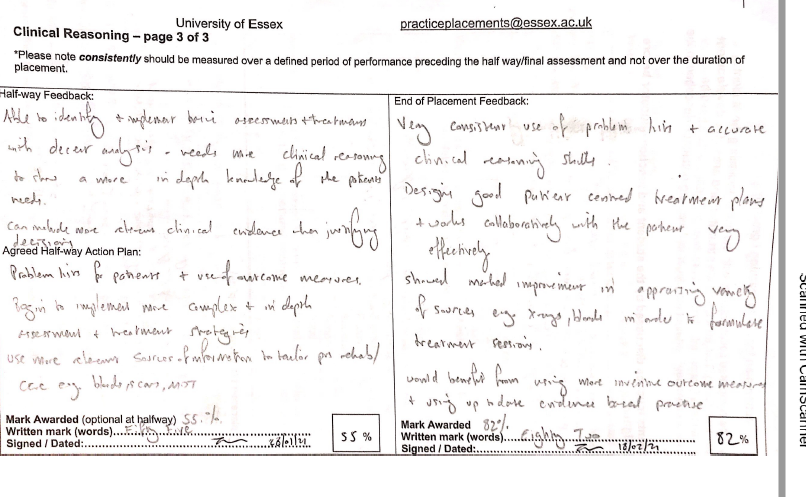 University of Essex
practiceplacements@essex.ac.uk
Clinical Reasoning – page 3 of 3
*Please note consistently should be measured over a defined period of performance preceding the half way/final assessment and not over the duration of
placement.
Half-way Feedback:
Able to identify + implement basic assessments + treatments
with decent analysis - needs more clinical reasoning
to show a more in depth knowledge of the patients
needs.
Can include more relevant clinical evidence when justifying
decisions
Agreed Half-way Action Plan:
Problem lists for patients + use of outcome measures.
Begin to implement more complex + in depth
assessment + treatment strategies
Use more relevant sources of information to tailor pts rehab/
care e.g. bloods, scans, MDT
Mark Awarded (optional at halfway) 55%
Written mark (words) Fifty Five
Signed / Dated: 26/01/21
55 %
End of Placement Feedback:
Very consistent use of problem lists + accurate
clinical reasoning skills.
Designs good patient centred treatment plans
+ works collaboratively with the patient very
effectively
Showed marked improvement in appraising variety
of sources e.g. x-rays, bloods in order to formulate
treatment sessions.
Would benefit from using more inventive outcome measures
+ using up to date evidence based practise
Mark Awarded 82%
Written mark (words) Eighty Two
Signed / Dated: 18/02/21
82%
Scanned with CamScanner